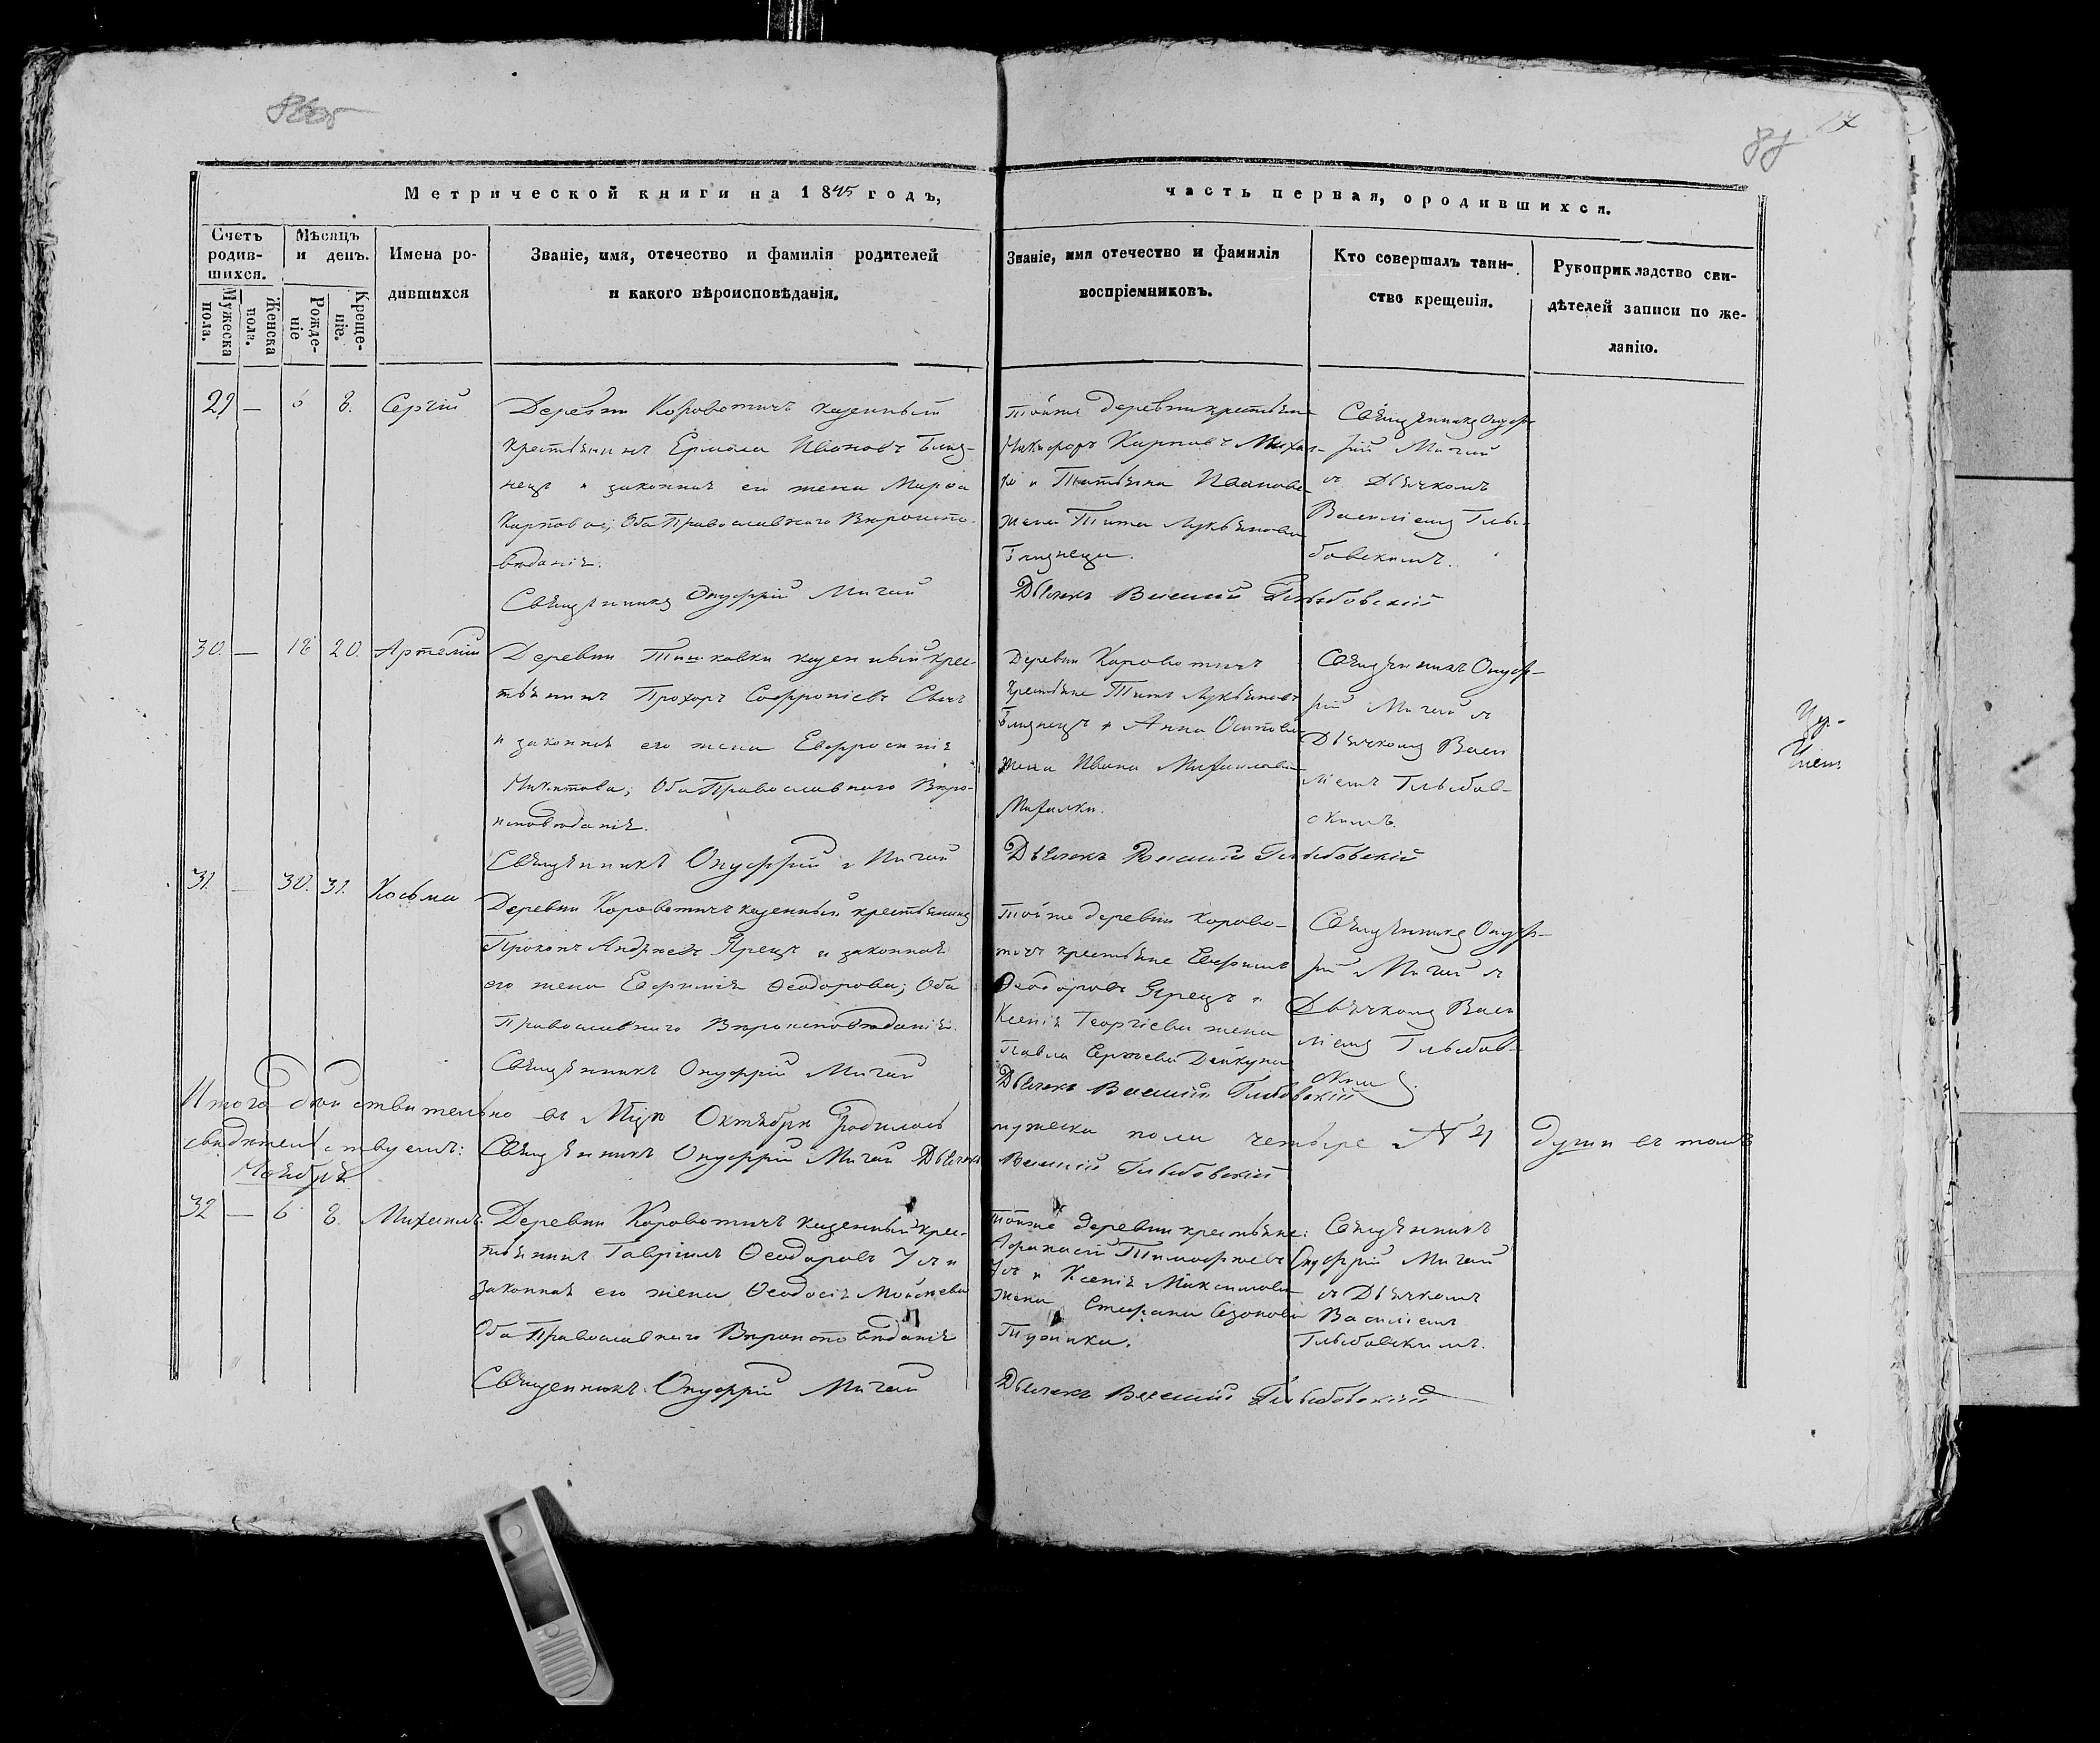 17
Метрической книги на 1845 годъ,
часть первая, ородившихся.
Счетъ родив-шихся.
Мужеска пола.
Женска пола.
Мѣсяцъ и день.
Рожде-ніе
Креще-ніе.
Имена ро-
дившихся
Званіе, имя, отечество и фамилія родителей
и какого вѣроисповѣданія.
Званіе, имя отечество и фамилія
воспріемниковъ.
Кто совершалъ таин-
ство крещенія.
Рукоприкладство сви-
дѣтелей записи по же-
ланію.
29 — 6 8. Сергій
Деревни Коровотичъ казенный
крестьянинъ Ермола Ивановъ Близ-
нецъ и законная его жена Марѳа
Карпова; Оба Православнаго Вѣроиспо-
вѣданія.
Священникъ Онуфрій Мигай
Тойже деревни крестьяне
Никифоръ Карповъ Михал-
ко и Татьяна Иванова
жена Тита Лукьянова
Близнеца.
Дьячекъ Василій Глыбовскій
Священникъ Онуф-
рій Мигай
съ Дьячкомъ
Василіемъ Глы-
бовскимъ.
30. — 18 20. Артемій
Деревни Тишковки казенный крес-
тьянинъ Прохоръ Софроніевъ
и законная его жена Евфросинія
Никитова; Оба Православнаго Вѣро-
исповѣданія.
Священникъ Онуфрій Мигай
Деревни Коровотичъ
Крестьяне Титъ Лукьяновъ
Близнецъ и Анна Осипова
жена Ивана Михайлова
Михалки.
Дьячекъ Василій Глыбовскій
Священникъ Онуф-
рій Мигай съ
Дьячкомъ Васи
ліемъ Глыбов-
скимъ.
31. — 30. 31. Косьма
Деревни Коровотичъ казенный крестьянинъ
Прокопъ Андреевъ Ярецъ и законная
его жена Евфимія Ѳеодорова; Оба
Православнаго Вѣроисповѣданія.
Священникъ Онуфрій Мигай
Тойже деревни Корово-
тичъ крестьяне Евфимъ
Ѳеодоровъ Ярецъ и
Ксенія Георгіева жена
Павла Сергіева Дейкуна
Дьячекъ Василій Глыбовскій
Священникъ Онуф-
рій Мигай съ
Дьячкомъ Васи
ліемъ Глыбов-
скимъ.
Итого дѣйствительно въ Мцѣ Октября родилось мужеска пола четыре № 4 души въ томъ
свидѣтельствуемъ: Священникъ Онуфрій Мигай Дьячекъ Василій Глыбовскій
Ноября
32 — 6 8. Михаилъ.
Деревни Коровотичъ казенный крес-
тьянинъ Гавріилъ Ѳеодоровъ Усъ и
законная его жена Ѳеодосія Моисеева
Оба Православнаго Вѣроисповѣданія
Священникъ Онуфрій Мигай
Тойже деревни крестьяне:
Афанасій Тимофѣевъ
Усъ и Ксенія Максимова
жена Стефана Созонова
Тупика.
Дьячекъ Василій Глыбовскій
Священникъ
Онуфрій Мигай
съ Дьячкомъ
Василіемъ
Глыбовскимъ.